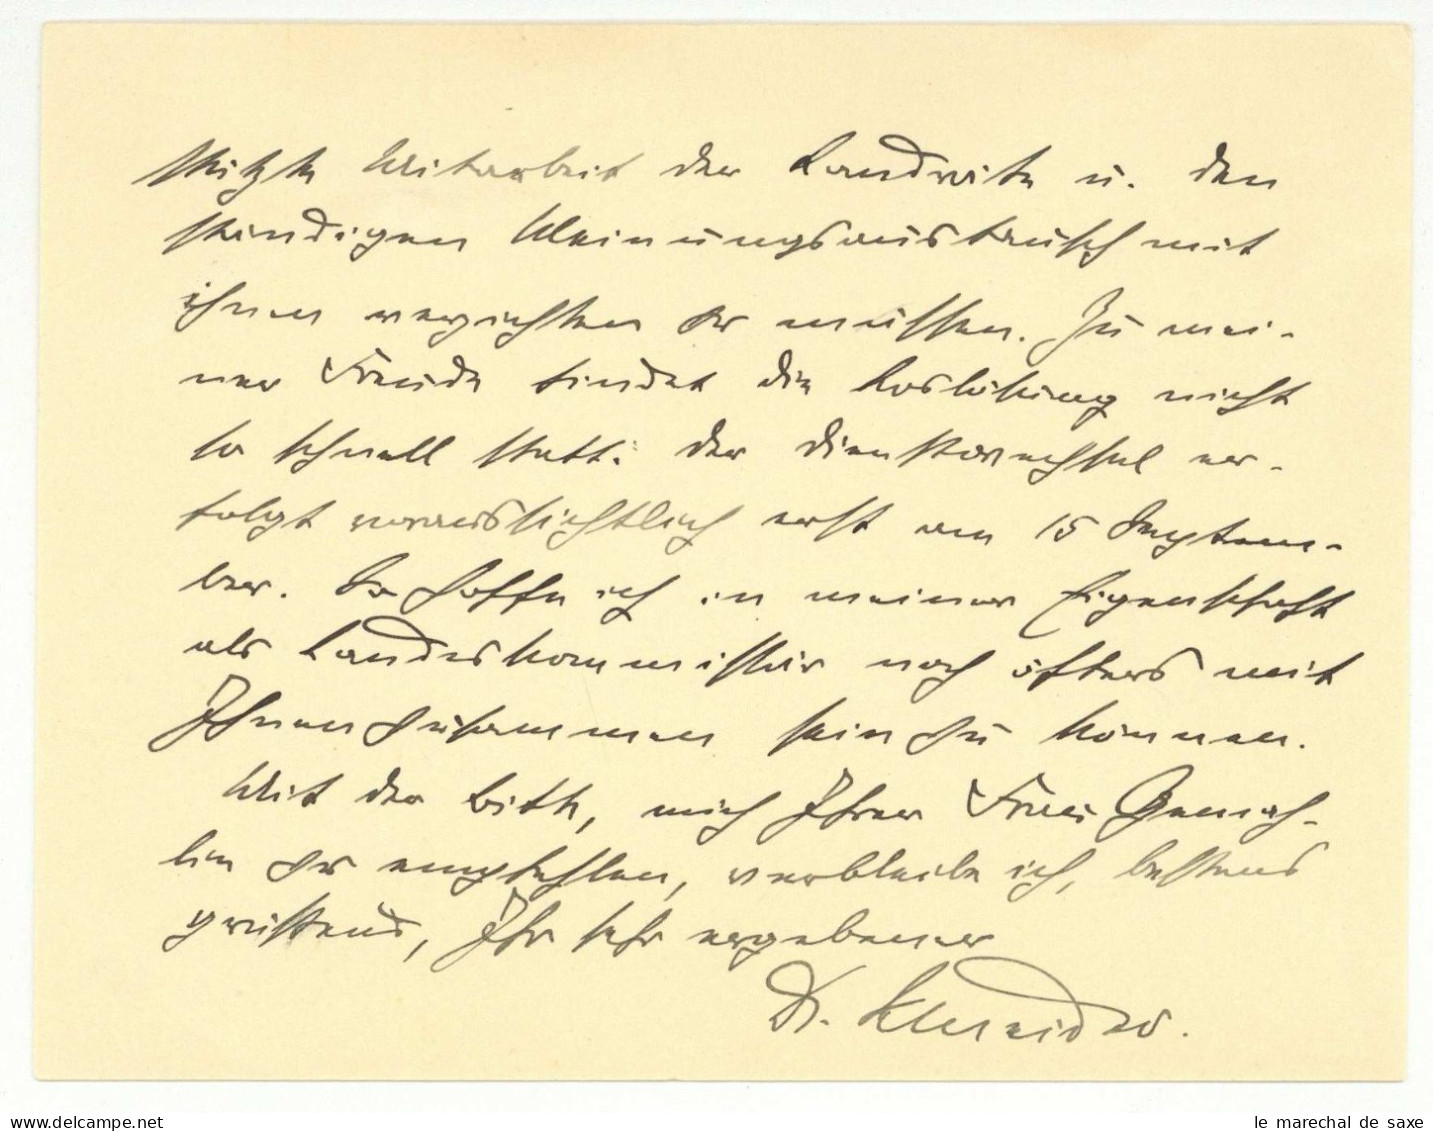 stützte Mitarbeit der Landräte u. den
ständigen Meinungsaustausch mit
ihnen verzichten zu müssen. Zu mei-
ner Freude findet die Loslösung nicht
so schnell statt: der Dienstwechsel er-
folgt voraussichtlich erst am 15 Septem-
ber. So hoffe ich in meiner Eigenschaft
als Landeskommissär noch öfters mit
Ihnen zusammen sein zu können.
Mit der Bitte, mich Ihrer Frau Gemah-
lin zu empfehlen, verbleibe ich, bestens
grüssend, Ihr sehr ergebener
Dr. Schneider.
le marechal de saxe